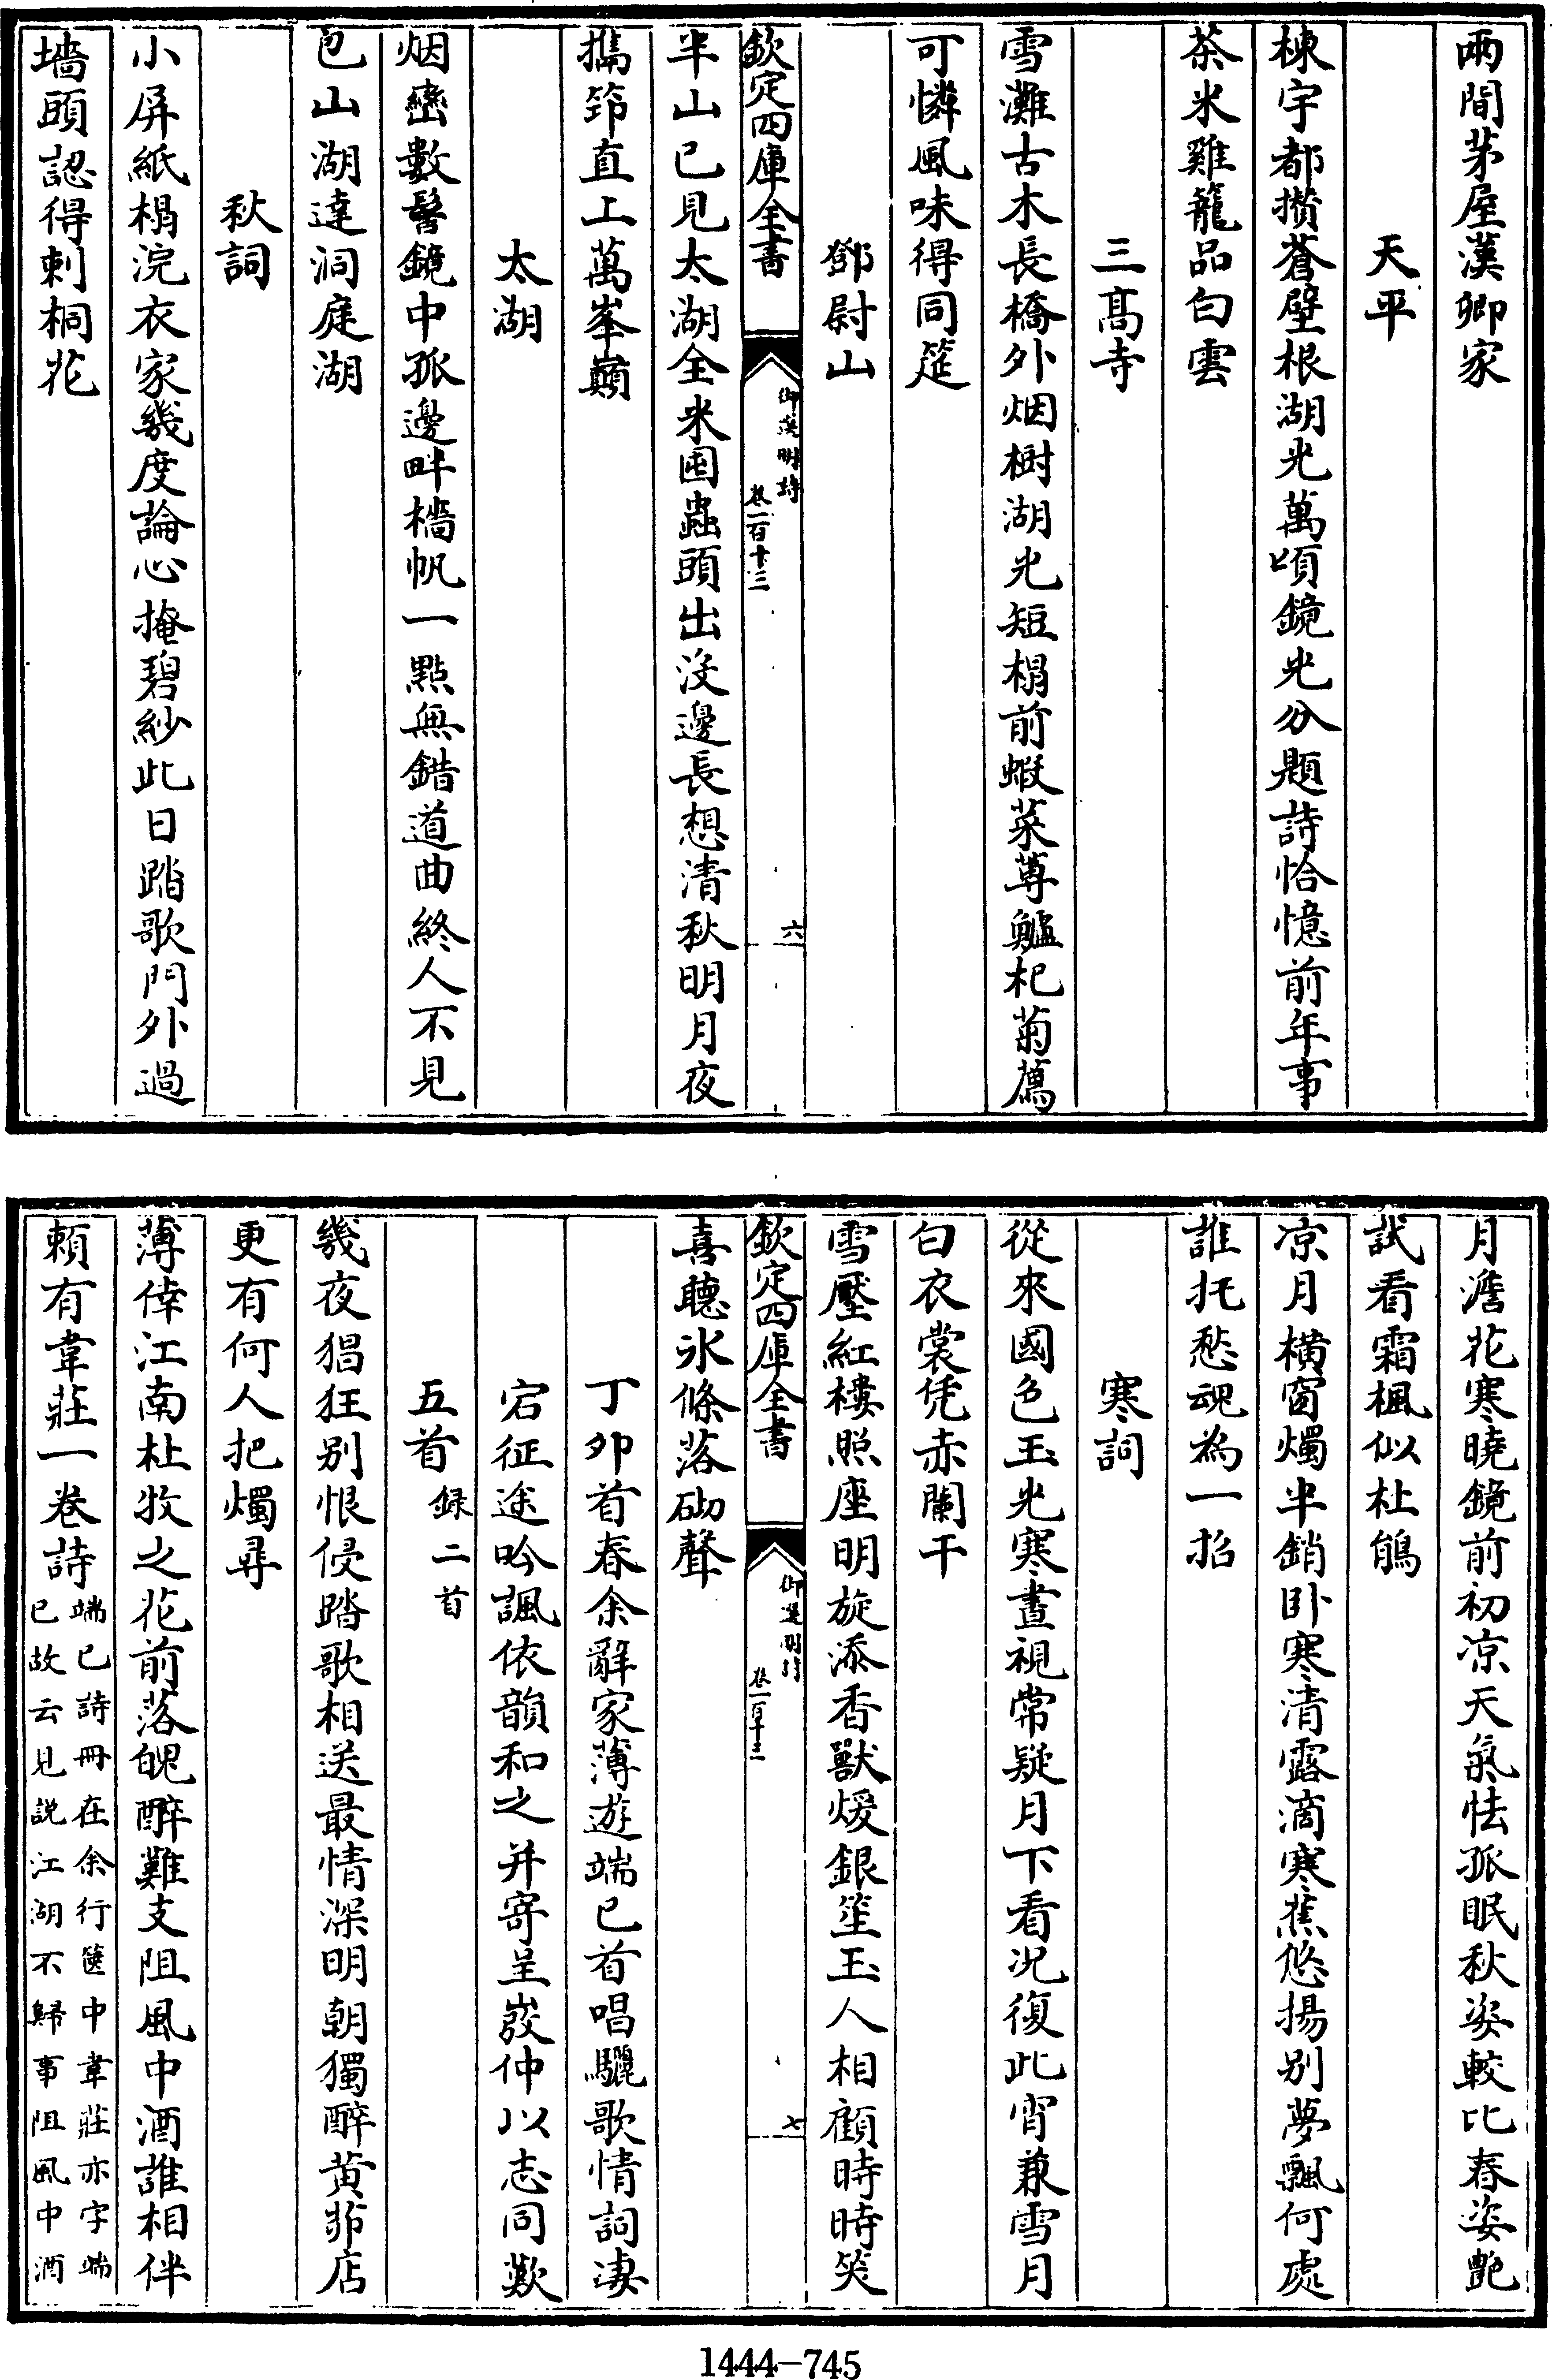 兩間茅屋漢卿家
天平
棟宇都攢蒼壁根湖光萬頃鏡光分題詩恰憶前年事
茶米雞籠品白雲
三髙寺
雪灘古木長橋外烟樹湖光短榻前蝦菜蓴鱸杞菊薦
可憐風味得同筵
鄧尉山
欽定四庫全書
御選明詩
卷一百十三
六
半山已見太湖全米囷蟲頭出没邊長想清秋明月夜
攜笻直上萬峯巔
太湖
烟巒數髻鏡中孤邊畔檣帆一點無錯道曲終人不見
包山湖達洞庭湖
秋詞
小屏紙榻浣衣家幾度論心掩碧紗此日踏歌門外過
墻頭認得刺桐花
月澹花寒曉鏡前初凉天氣怯孤眠秋姿較比春姿艶
試看霜楓似杜鵑
凉月横窗燭半銷卧寒清露滴寒蕉悠揚别夢飄何處
誰托愁魂為一招
寒詞
從來國色玉光寒晝視常疑月下看况復此宵兼雪月
白衣裳凭赤闌干
雪壓紅樓照座明旋添香獸煖銀笙玉人相顧時時笑
欽定四庫全書
御選明詩
卷一百十三
七
喜聽氷條落砌聲
丁卯首春余辭家薄遊端己首唱驪歌情詞悽
宕征途吟諷依韻和之并寄呈嵏仲以志同歎
五首録二首
幾夜猖狂别恨侵踏歌相送最情深明朝獨醉黄茆店
更有何人把燭尋
薄倖江南杜牧之花前落魄醉難支阻風中酒誰相伴
頼有韋莊一卷詩端己詩冊在余行篋中韋莊亦字端
己故云見説江湖不歸事阻風中酒
1444-745